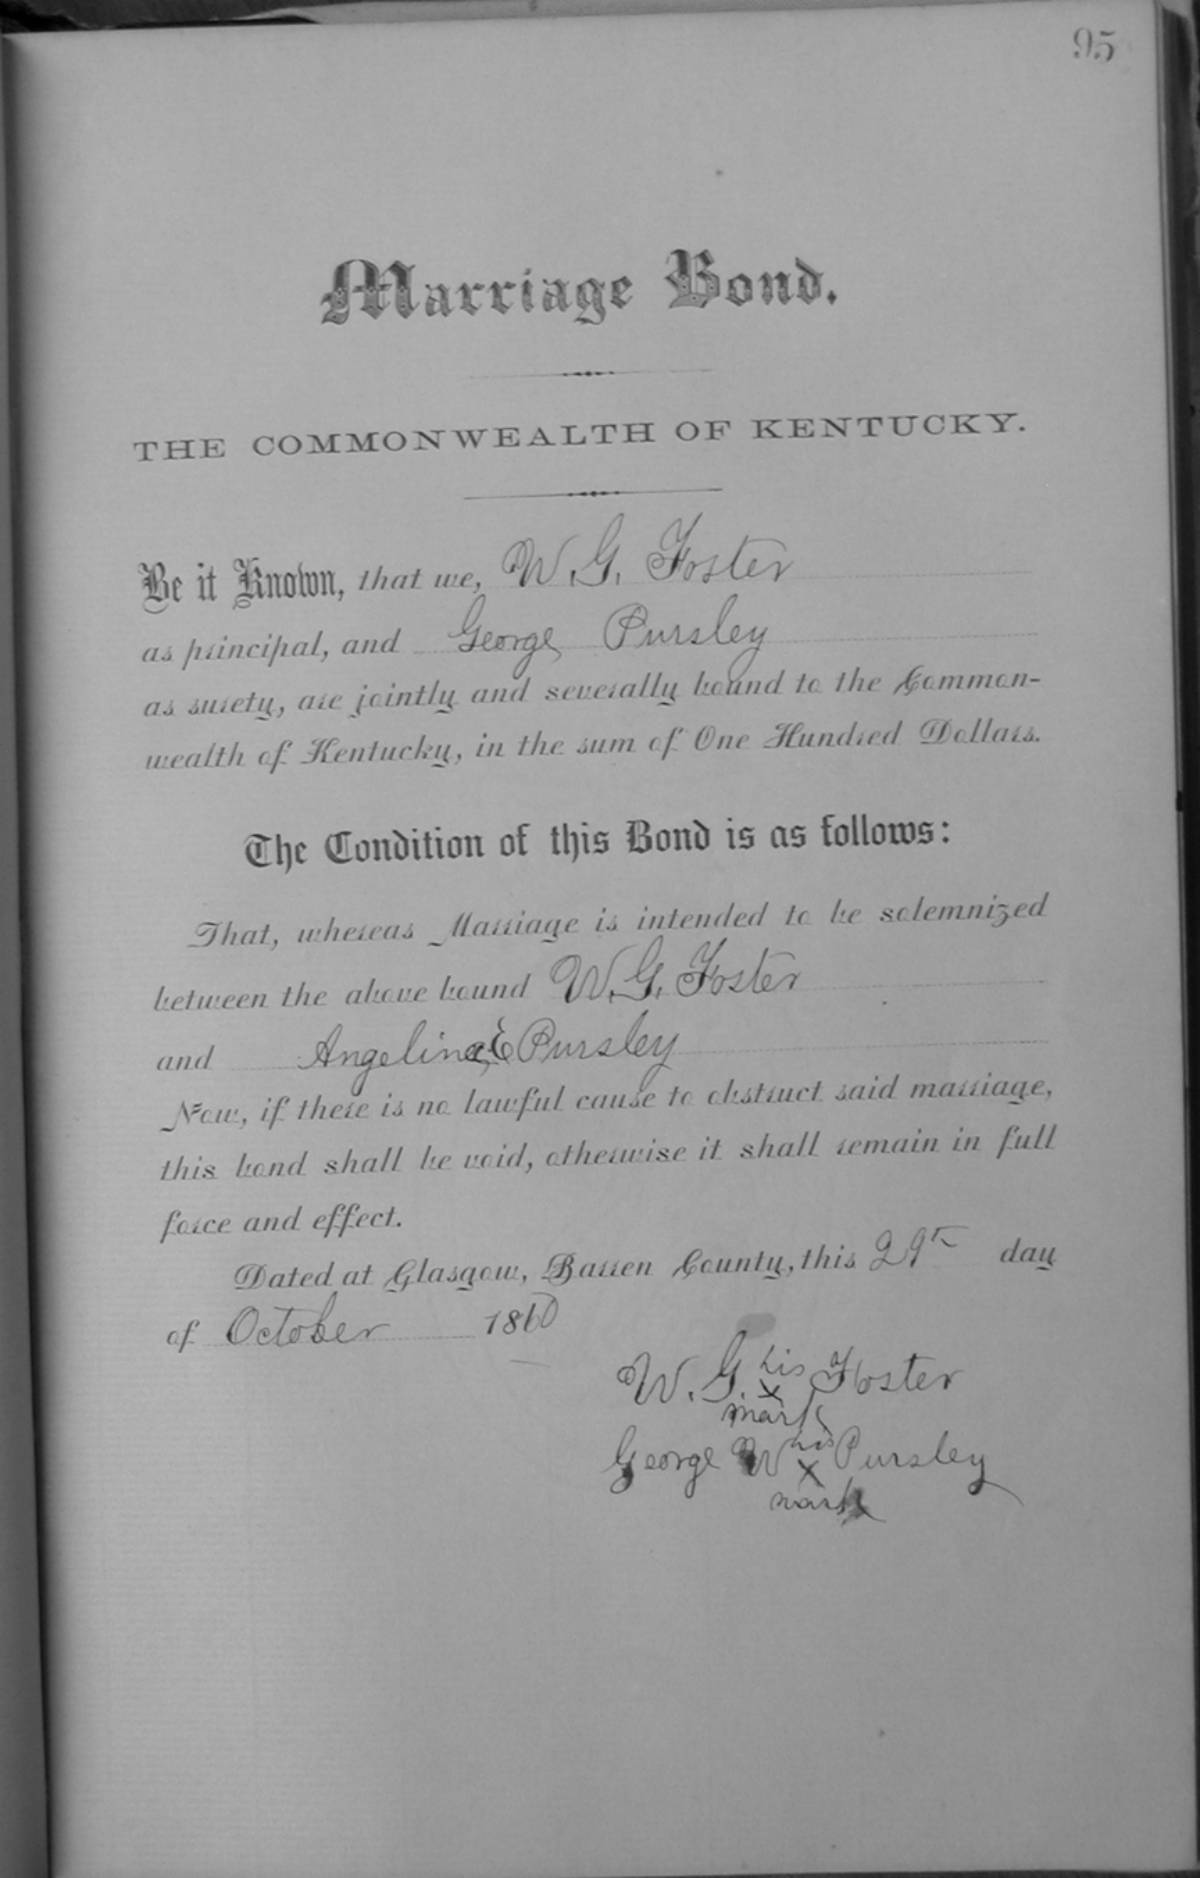 95
Marriage Bond.
THE COMMONWEALTH OF KENTUCKY.
Be it Known, that we, W. G. Foster
as principal, and George Pursley
as surety, are jointly and severally bound to the Common-
wealth of Kentucky, in the sum of One Hundred Dollars.
The Condition of this Bond is as follows:
That, whereas Marriage is intended to be solemnized
between the above bound W. G. Foster
and Angelina E Pursley
Now, if there is no lawful cause to obstruct said marriage,
this bond shall be void, otherwise it shall remain in full
force and effect.
Dated at Glasgow, Barren County, this 29th day
of October 1860
his
W. G. x Foster
mark
his
George W x Pursley
mark